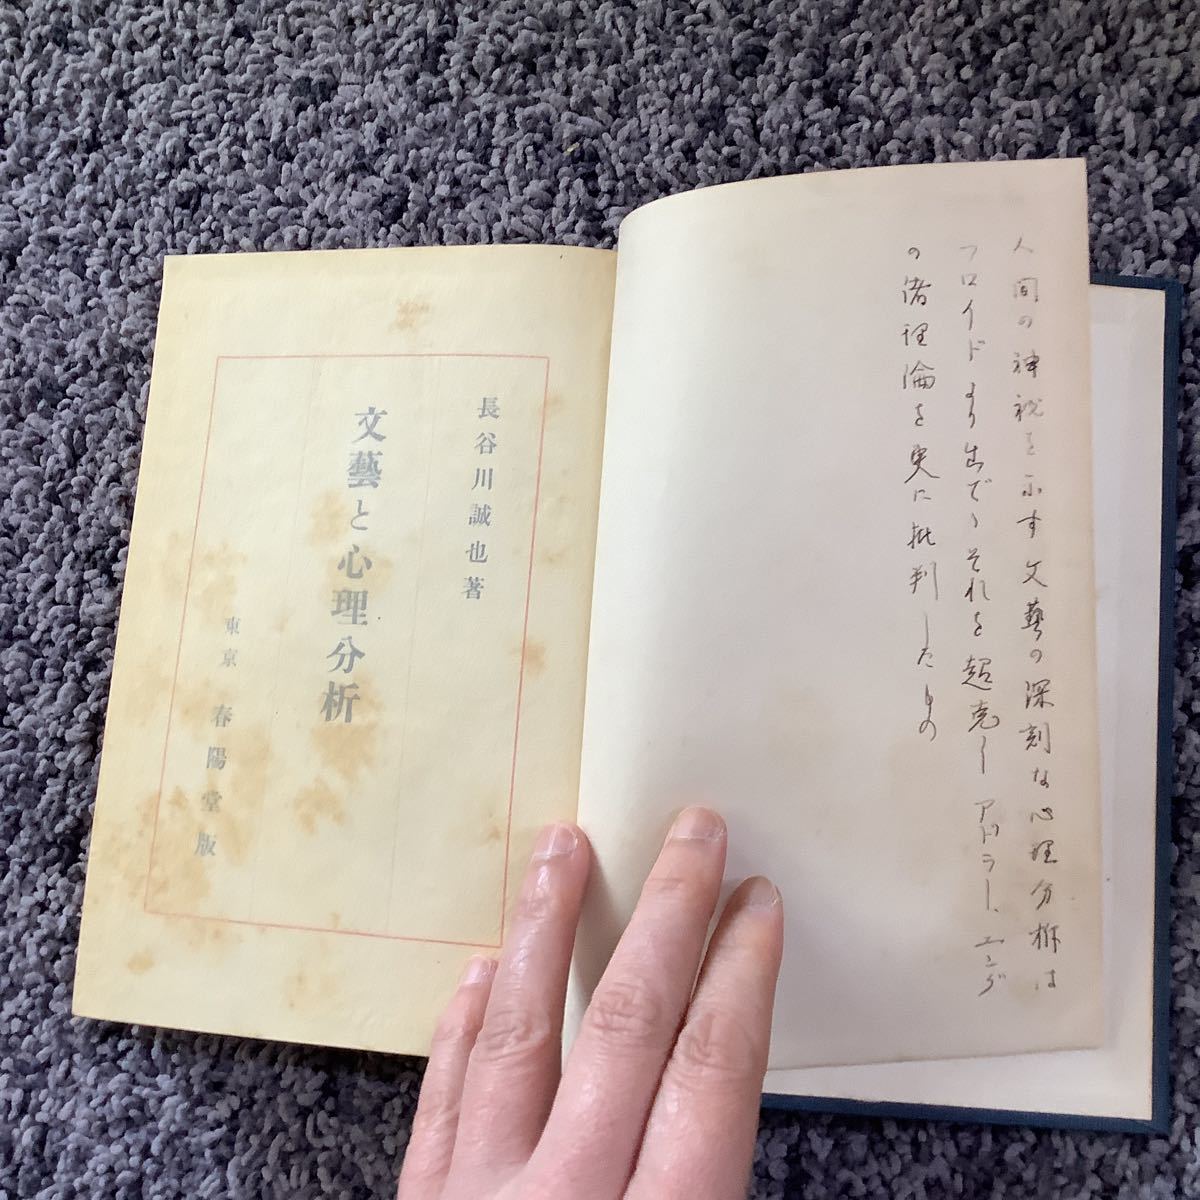 人間の神祕を示す文藝の深刻な心理分析は
フロイドより出でゝそれを超克し アドラー、ユング
の諸理論を更に批判したもの
長谷川誠也著
文藝と心理分析
東京 春陽堂版